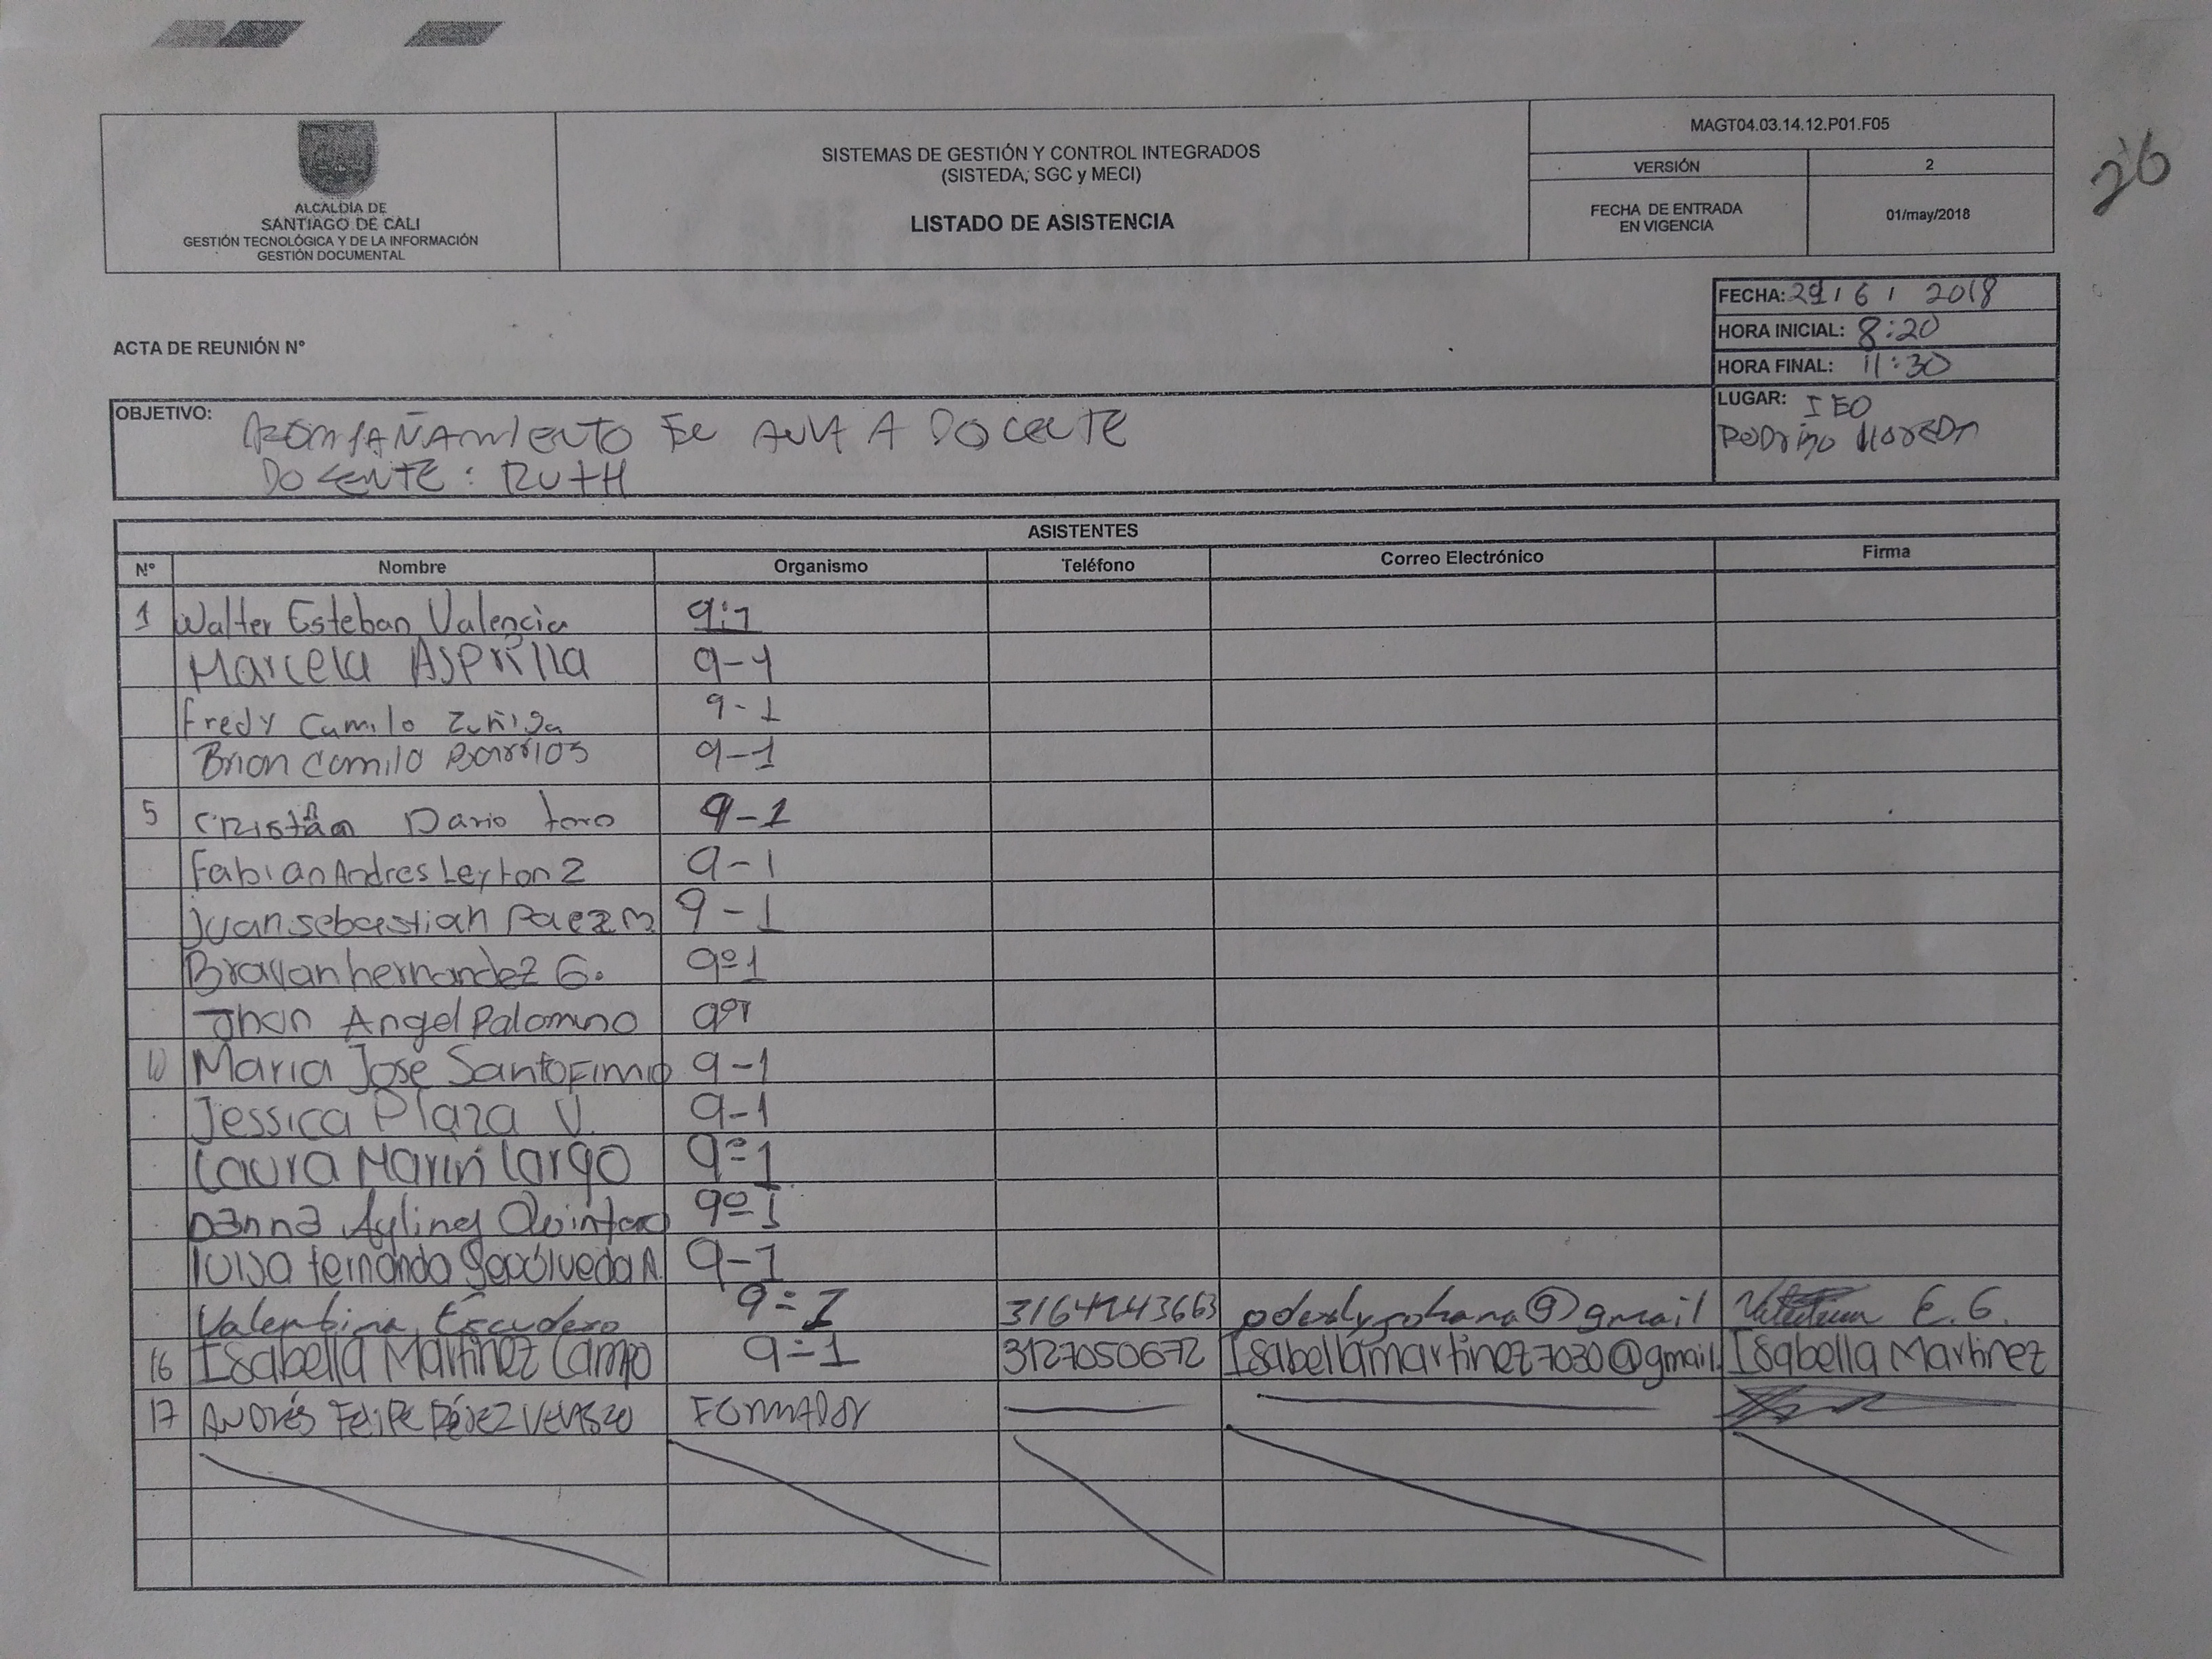 ALCALDÍA DE
SANTIAGO DE CALI
GESTIÓN TECNOLÓGICA Y DE LA INFORMACIÓN
GESTIÓN DOCUMENTAL
SISTEMAS DE GESTIÓN Y CONTROL INTEGRADOS
(SISTEDA, SGC y MECI)
LISTADO DE ASISTENCIA
MAGT04.03.14.12.P01.F05
VERSIÓN 2
FECHA DE ENTRADA
EN VIGENCIA
01/may/2018
26
FECHA: 29 / 6 / 2018
HORA INICIAL: 8:20
HORA FINAL: 11:30
ACTA DE REUNIÓN N°
LUGAR: IEO
RODRIGO LLOREDA
OBJETIVO: ACOMPAÑAMIENTO EN AULA A DOCENTE
DOCENTE: RUTH
ASISTENTES
N° Nombre Organismo Teléfono Correo Electrónico Firma
1 Walter Esteban Valencia 9:1
Marcela Asprilla 9-1
Fredy Camilo Zuñiga 9-1
Brian Camilo Barrios 9-1
5 Cristian Dario toro 9-1
Fabian Andres Leyton Z 9-1
Juan sebastian Paez M 9-1
Brayan hernandez G. 9º1
Jhon Angel Palomino 9º1
10 Maria Jose Santofimio 9-1
Jessica Plaza V. 9-1
Laura Marin largo 9º1
Danna Quintero 9º1
luisa fernanda Sepúlveda A. 9-1
Valentina Escudero 9=1 @gmail E. G.
16 Isabella Martinez Campo 9=1 3127050672 Isabellamartinez7030@gmail. Isabella Martinez
17 ANDRÉS FELIPE PÉREZ VELASCO FORMADOR